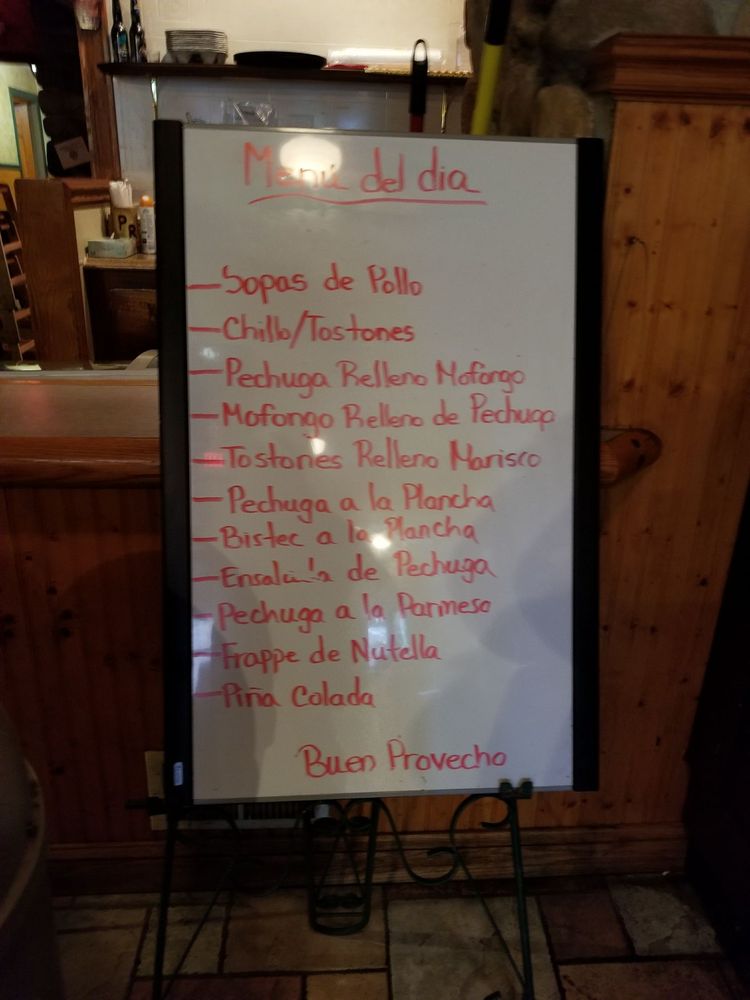 Menú del dia
— Sopas de Pollo
— Chillo/Tostones
— Pechuga Relleno Mofongo
— Mofongo Relleno de Pechuga
— Tostones Relleno Marisco
— Pechuga a la Plancha
— Bistec a la Plancha
— Ensalada de Pechuga
— Pechuga a la Parmeso
— Frappe de Nutella
— Piña Colada
Buen Provecho